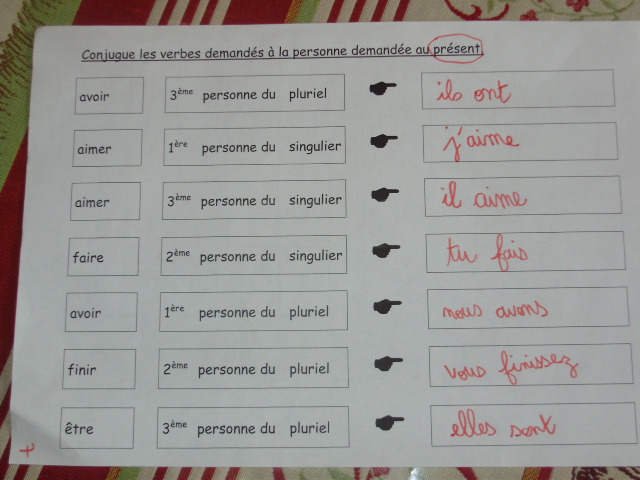 Conjugue les verbes demandés à la personne demandée au présent.
avoir 3ème personne du pluriel ils ont
aimer 1ère personne du singulier j'aime
aimer 3ème personne du singulier il aime
faire 2ème personne du singulier tu fais
avoir 1ère personne du pluriel nous avons
finir 2ème personne du pluriel vous finissez
être 3ème personne du pluriel elles sont